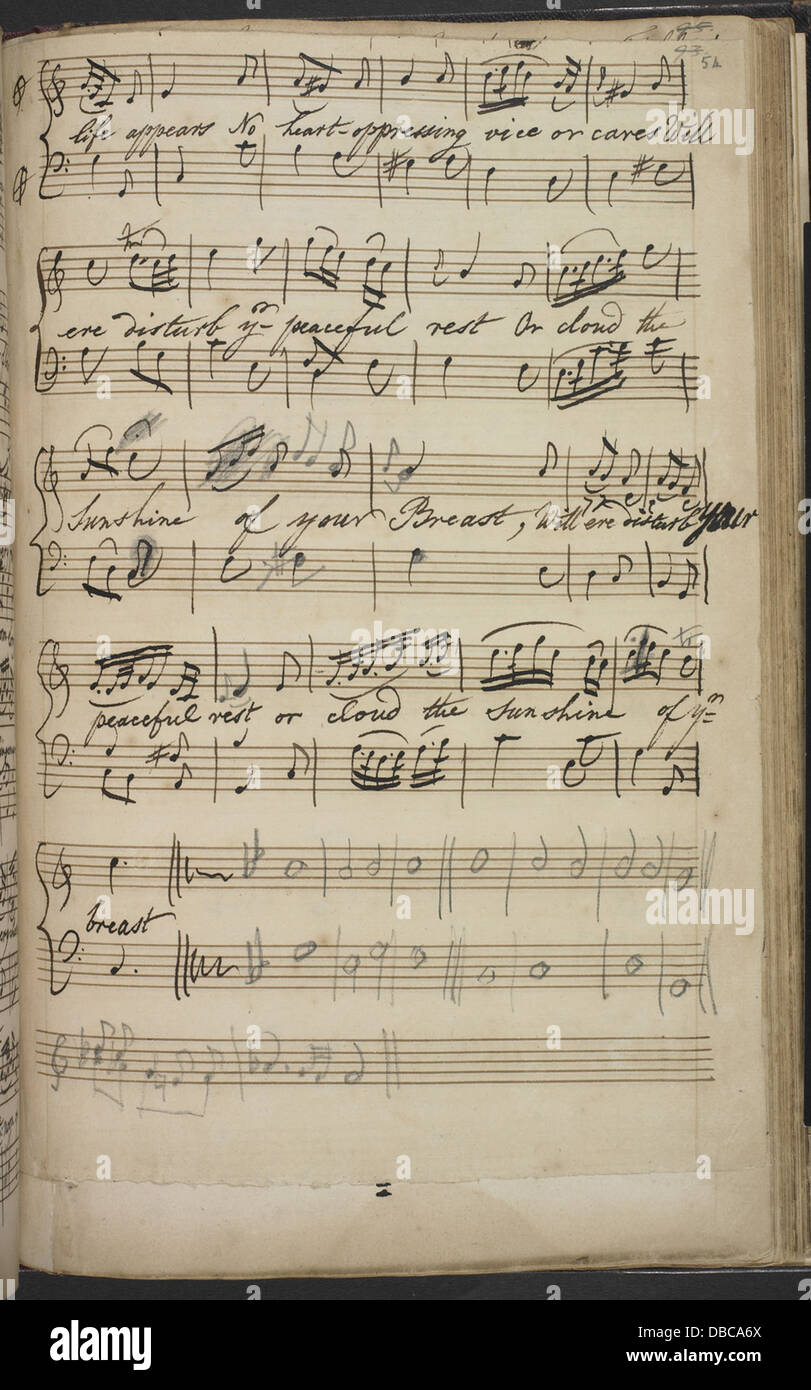 54
life appears No heart-oppressing vice or cares Will
ere disturb yr peaceful rest Or cloud the
Sunshine of your Breast, Will ere disturb your
peaceful rest or cloud the sunshine of yr
breast
alamy
alamy
Image ID: DBCA6X
www.alamy.com